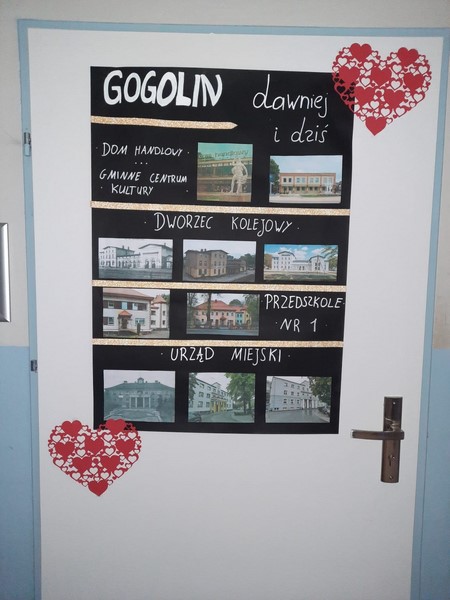 GOGOLIN dawniej
i dziś
· DOM HANDLOWY ·
...
GMINNE CENTRUM
KULTURY ·
· DWORZEC KOLEJOWY ·
PRZEDSZKOLE
NR 1
· URZĄD MIEJSKI ·